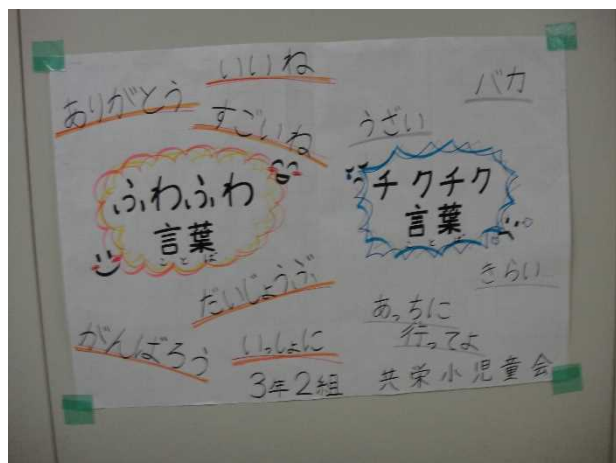 いいね
ありがとう
すごいね
ふわふわ
言葉
ことば
だいじょうぶ
がんばろう
いっしょに
バカ
うざい
チクチク
言葉
ことば
きらい
あっちに
行ってよ
3年2組 共栄小児童会